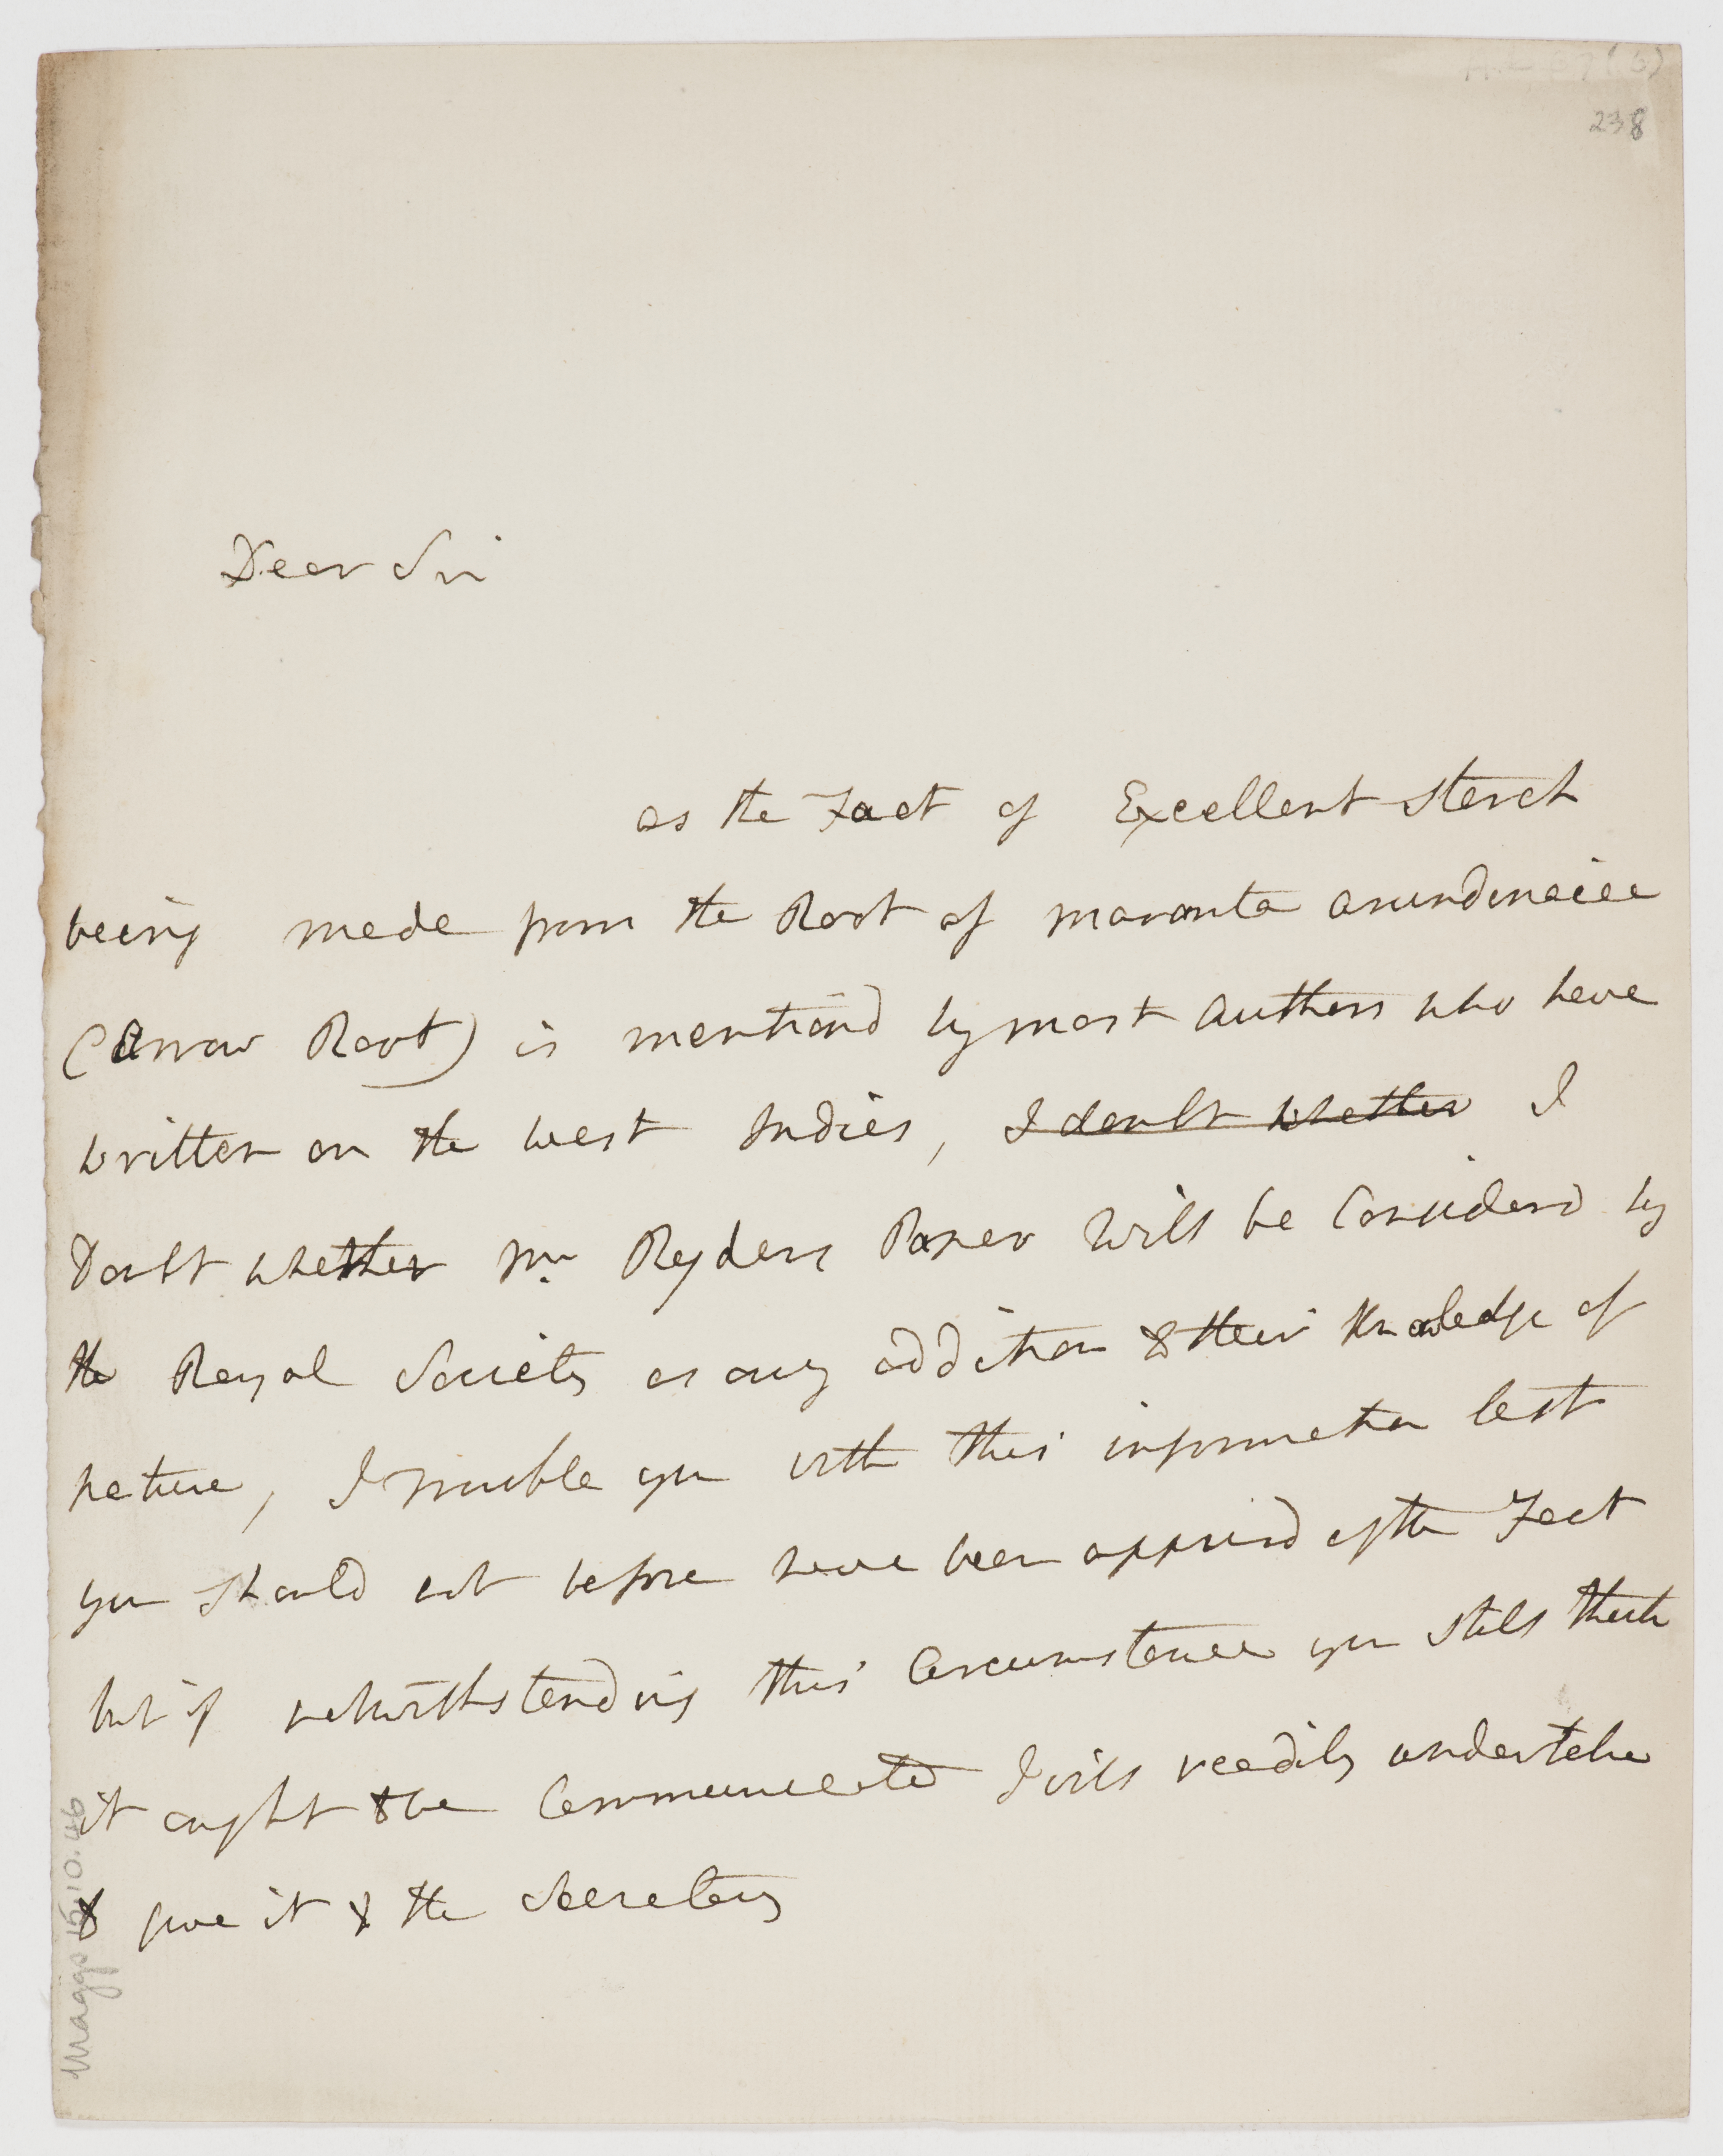 238
Dear Sir
as the Fact of Excellent Starch
being made from the Root of maranta arundinacea
(Arrow Root) is mentiond by most Authors who have
written on the west Indies, I doubt whether I
Doubt whether Mr Ryders Paper will be Considerd by
the Royal Society as any addition to their Knowledge of
nature, I trouble you with this information lest
you Should not before have been apprisd of the Fact
but if notwithstanding this Circumstance you still think
it ought to be Communicated I will readily undertake
to give it to the Secretary
Maggs 15.10.46